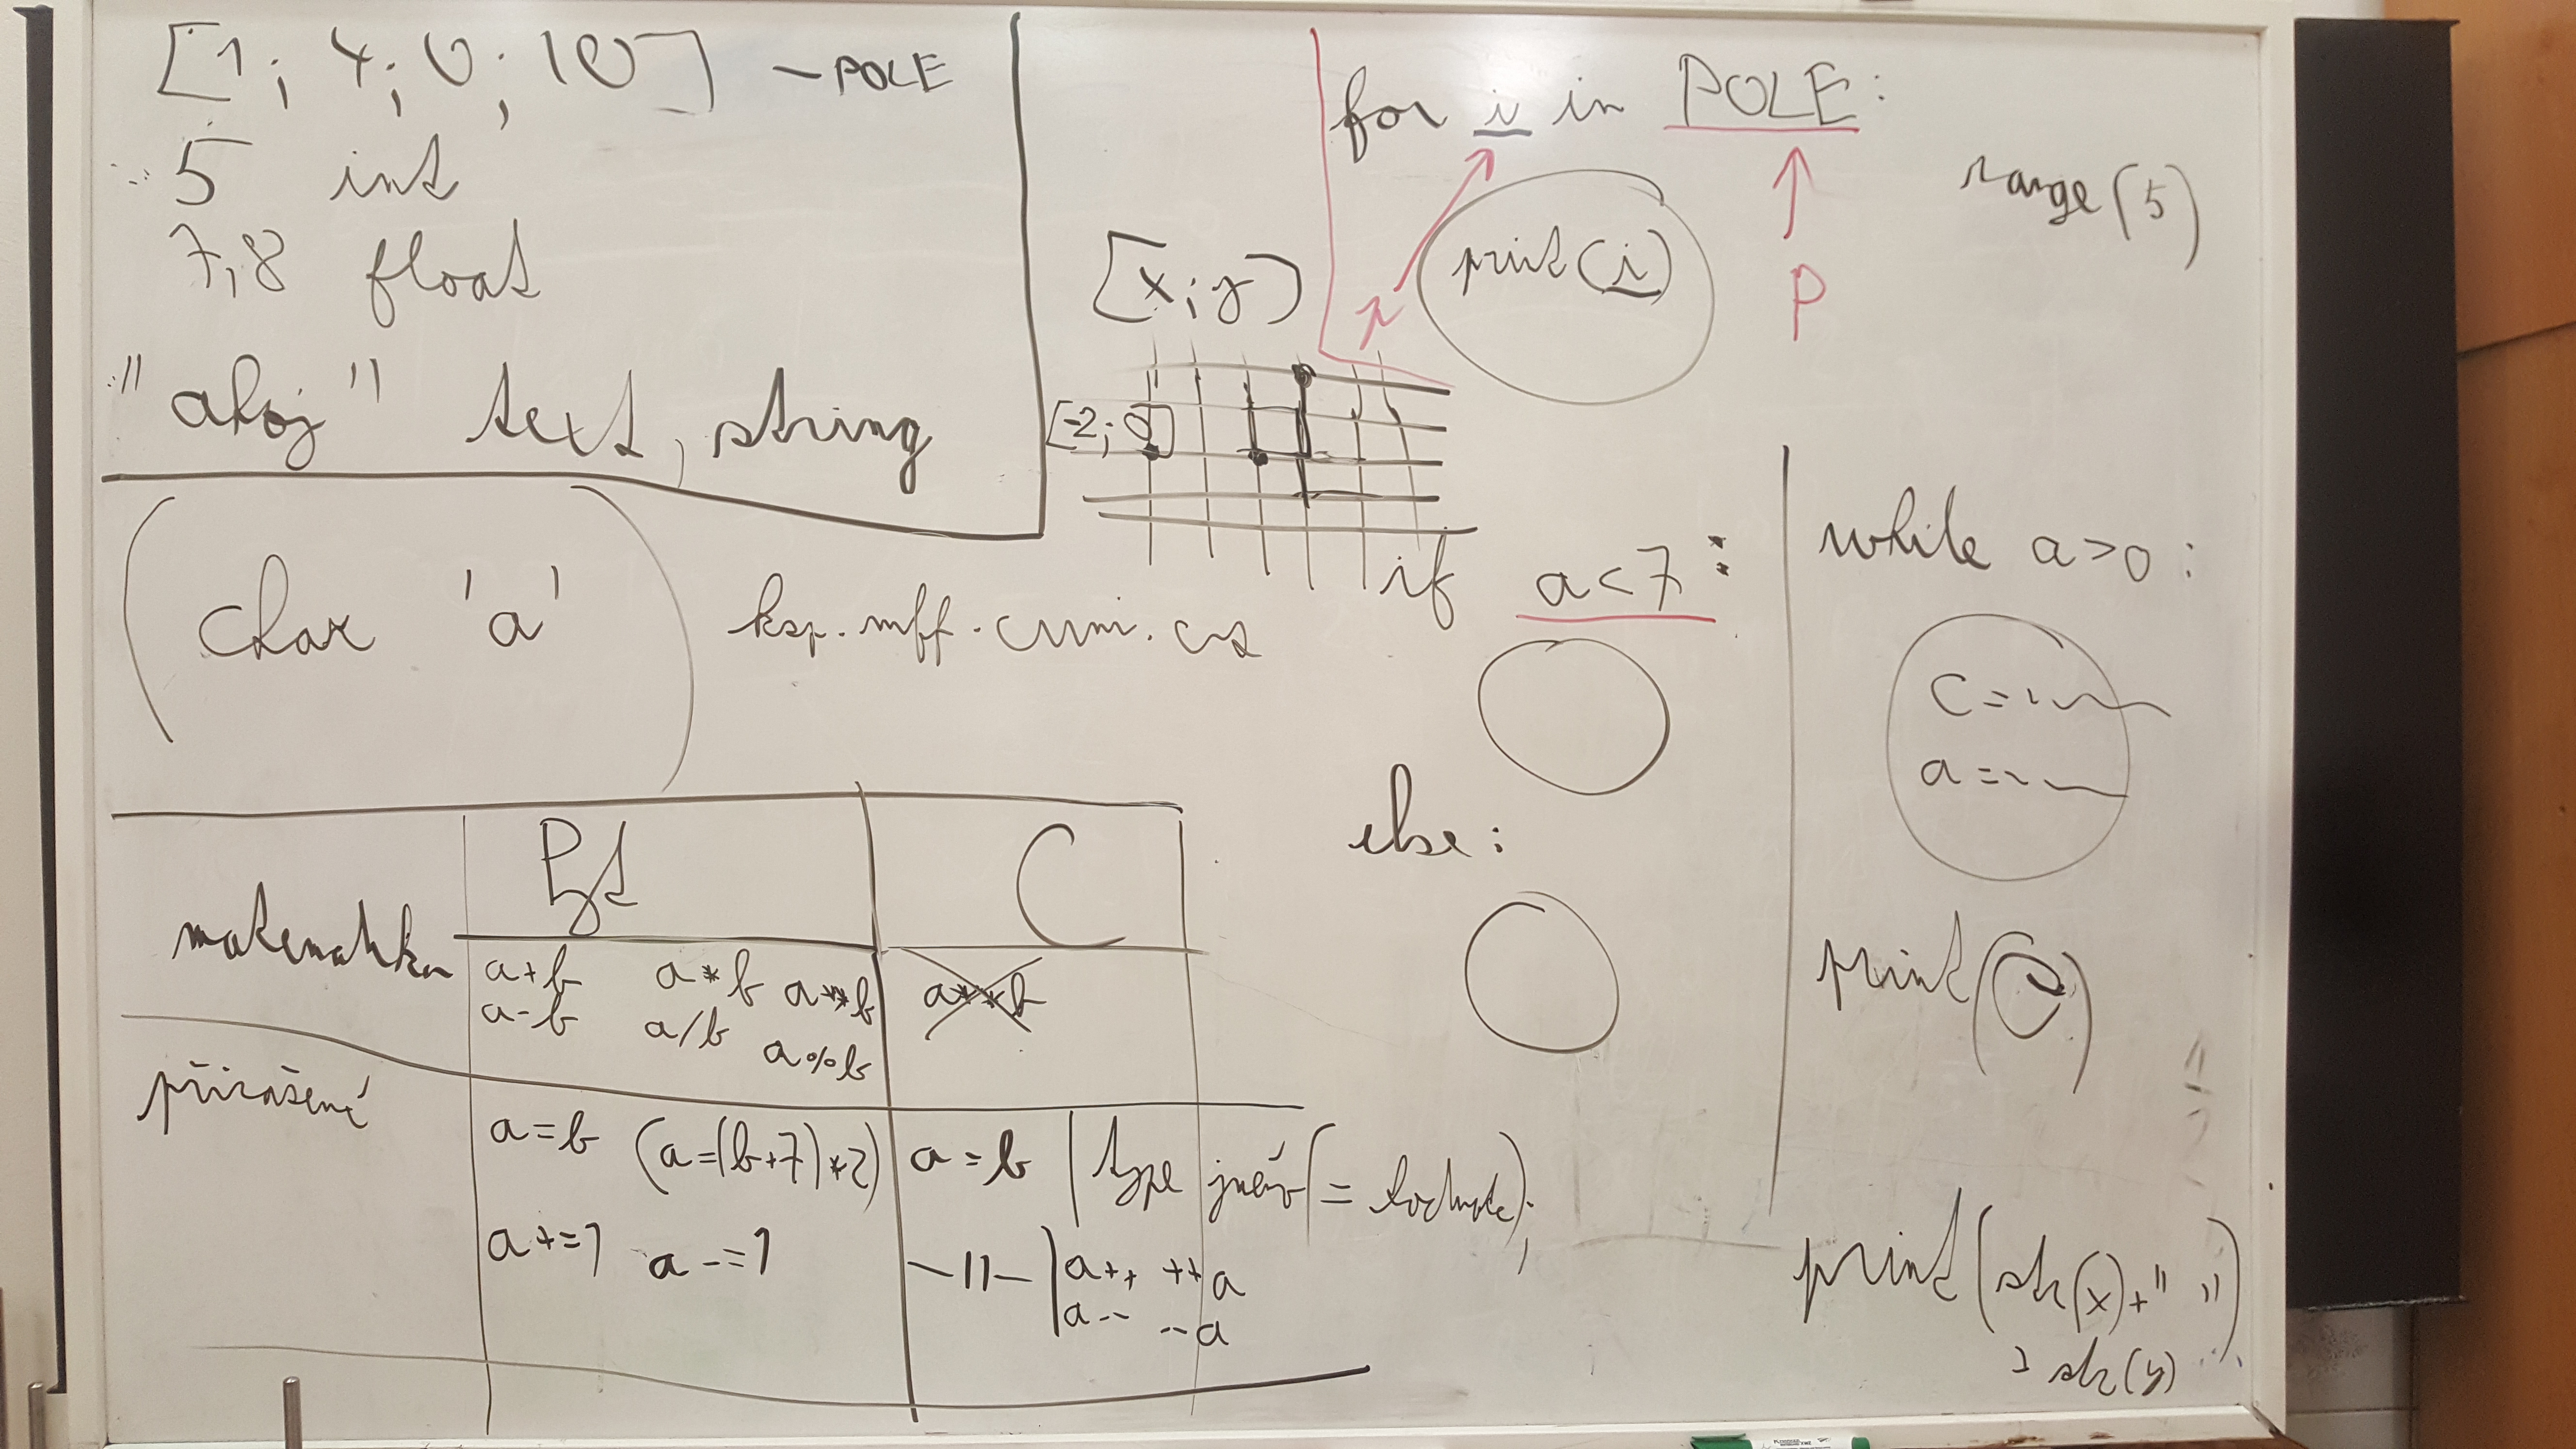 [1; 4; 0; 10] - POLE
5 int
7,8 float
"ahoj" text, string
(char 'a')
ksp.mff.cuni.cz
[x;y]
[-2; 0]
for i in POLE:
print(i)
p
P
range(5)
if a<7 :
else:
while a>0 :
c=
a=
print( )
print(str(x)+" "
str(y)
Pyt
C
matematika
a+b a*b a**b
a-b a/b a%b
a**b
přiřazení
a=b (a=(b+7)*2)
a+=1 a-=1
a=b | type jméno(= hodnota);
-||- | a++ ++a
a-- --a